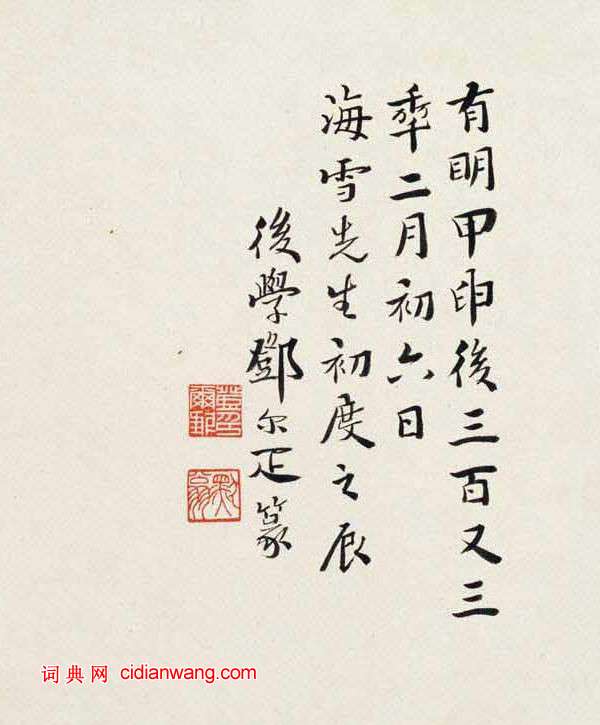 有明甲申後三百又三
秊二月初六日
海雪先生初度之辰
後學鄧尔疋篆
词典网 cidianwang.com